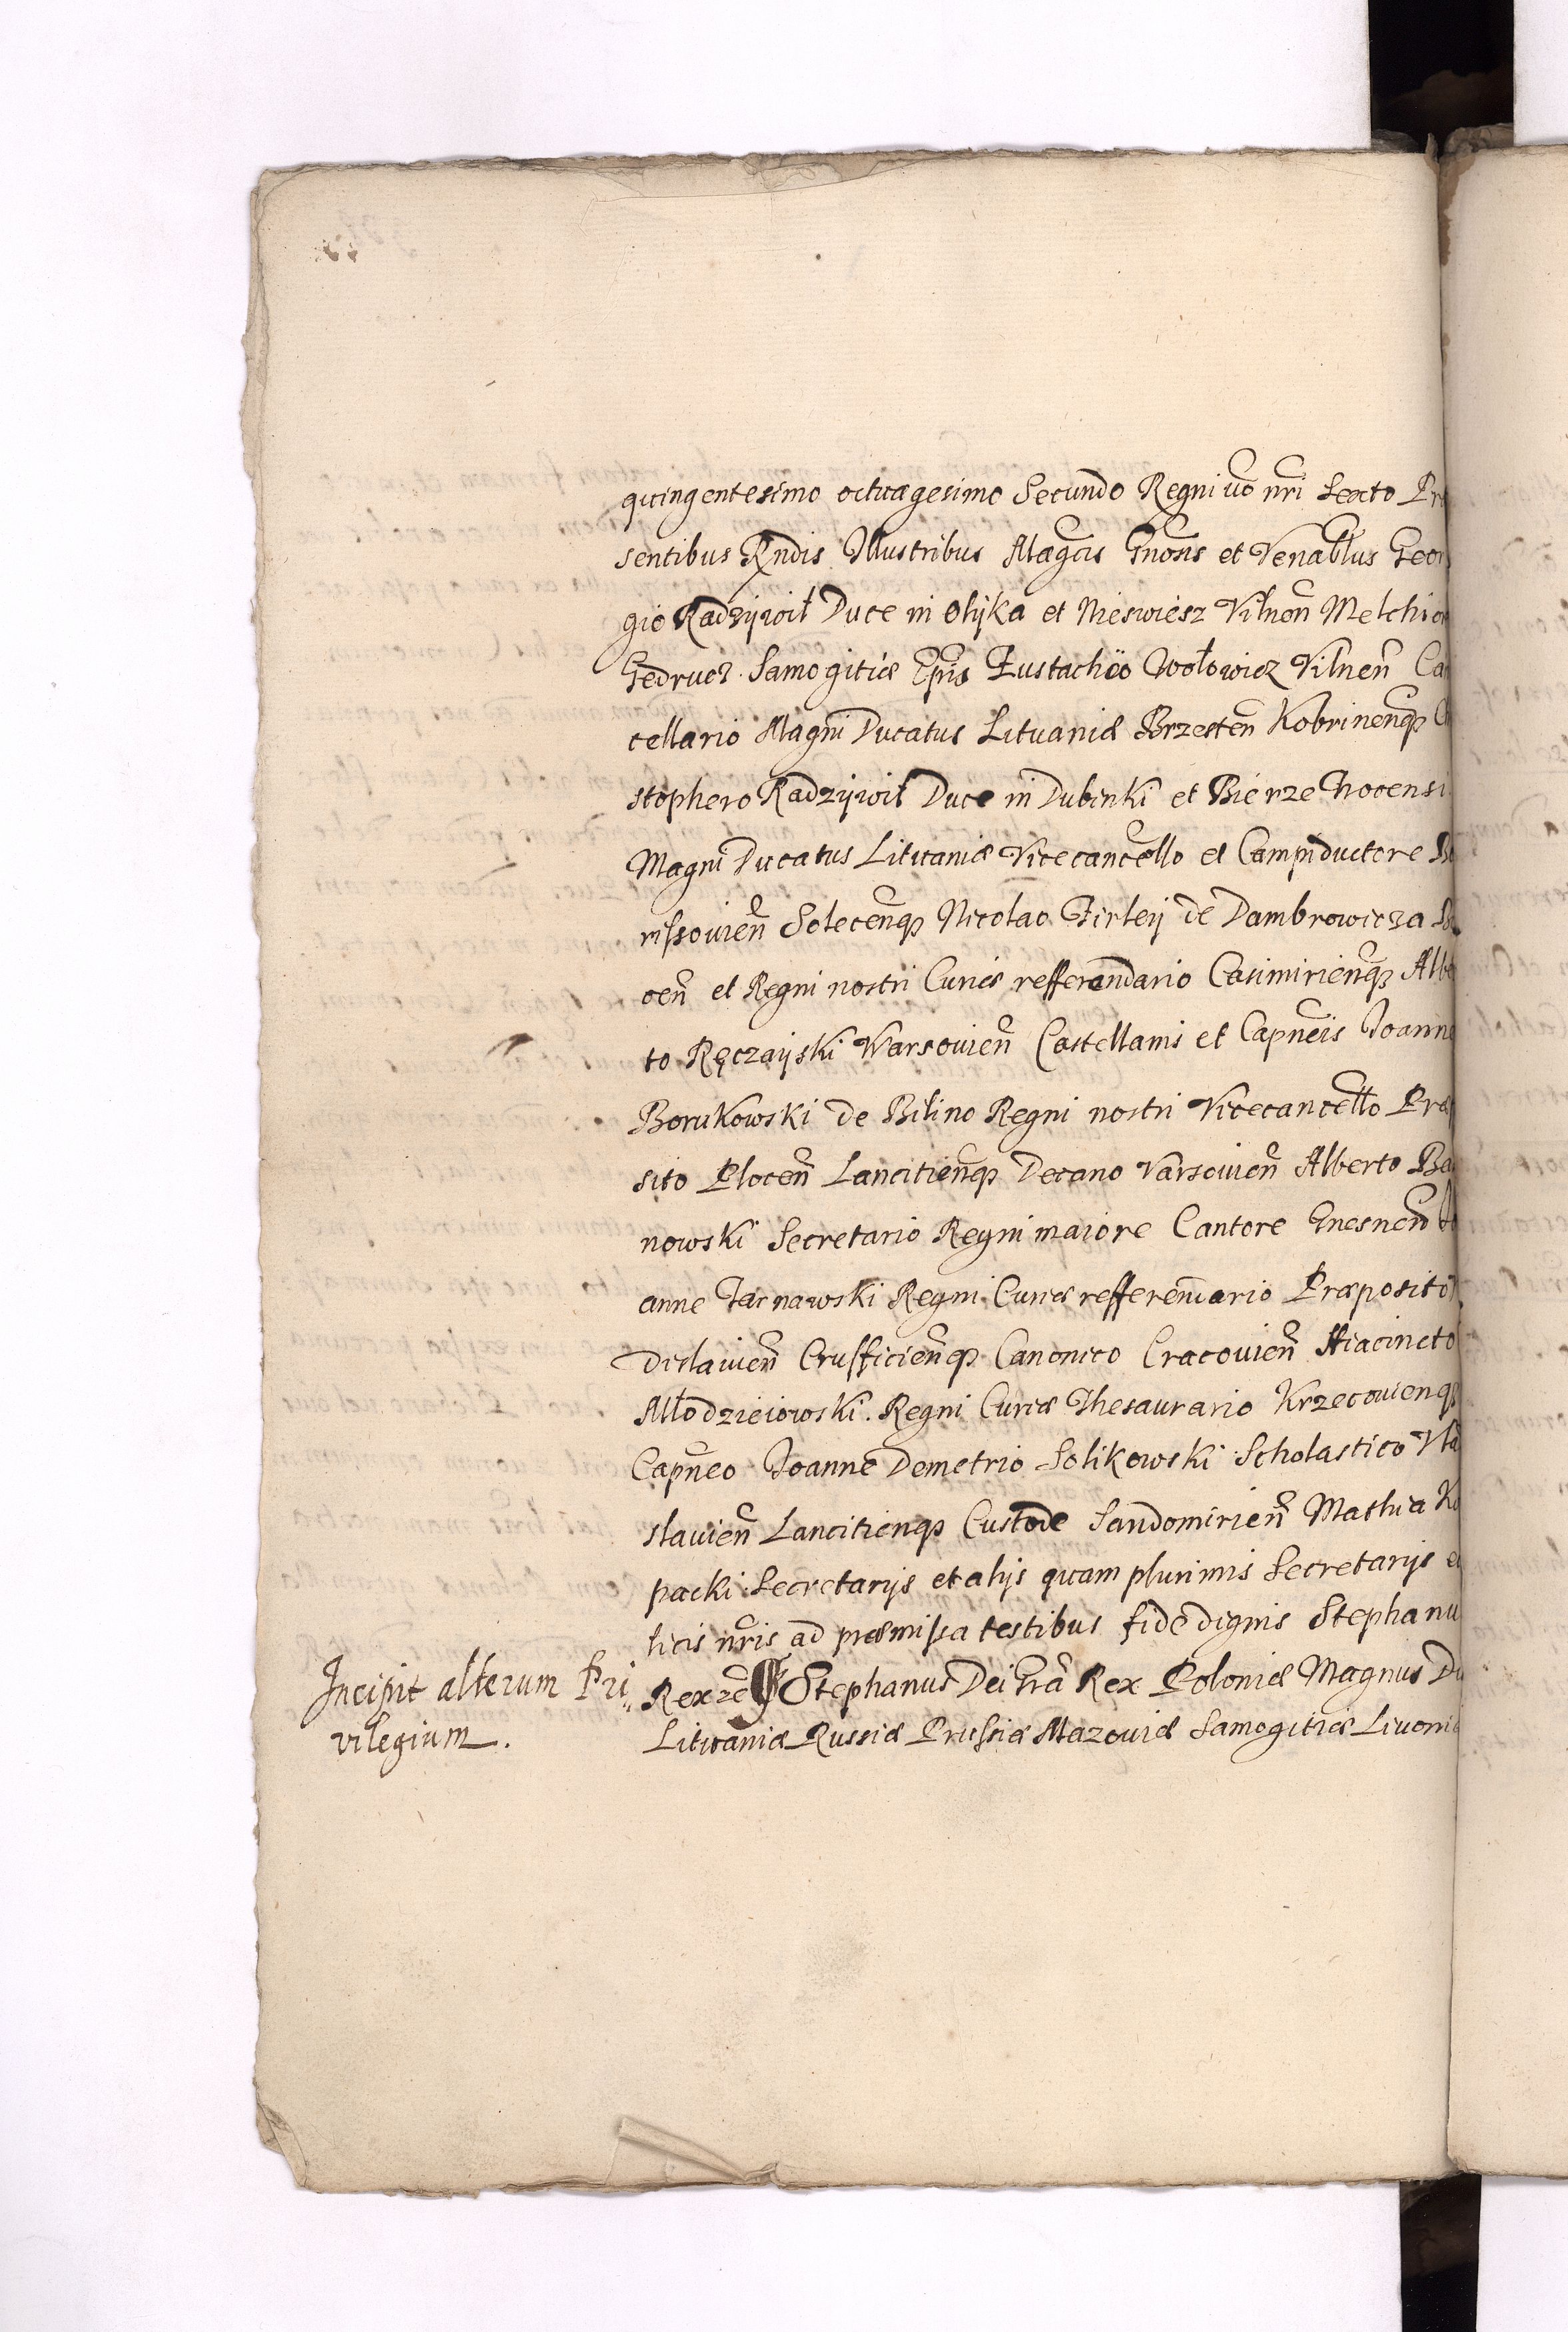 quingentesimo octuagesimo Secundo Regni vō nr̄i Sexto Præ
sentibus Rn̄dis Illustribus Magcis Gnosis et Venablus Geor
gio Radzÿwił Duce in Olÿka et Nieswiesz Vilnen̄ Melchior
Gedrucz. Samogitiæ Epis̄ Eustachio Wołowicz Vilnen̄ Can
cellario Magni Ducatus Lituaniæ Brzesten̄ Kobrinenq3
stophero Radzÿwił Duce in Dubinki et Bierze Trocensi
Magni Ducatus Lituaniæ Vicecancello et Campiductore Bo
rissovien̄ Solecenq3 Nicolao Firleÿ de Dambrowicza
cen̄ et Regni nostri Curiæ refferandario Casimirienq3 Albe
to Ręczaÿski Warsovien̄ Castellanis et Capn̄eis Joanne
Borukowski de Bilino Regni nostri Vicecancello Præ
sito Plocen̄ Lancitienq3 Decano Varsovien̄ Alberto Ba
nowski Secretario Regni maiore Cantore Gnesnen̄ Jo
anne Tarnawski Regni Curiæ refferendario Præposito
dislavien̄ Crufficienq3 Canonico Cracovien̄ Hiacincto
Młodzieiowski. Regni Curiæ Thesaurario Krzecovienq3
Capn̄eo Joanne Demetrio Solikowski Scholastico Vla
slavien̄ Lancitienq3 Custode Sandomirien̄ Mathia Ko
packi Secretarÿs et alÿs quam plurimis Secretarÿs
licis nr̄is ad præmissa testibus fide dignis Stephanus
Incipit alterum Pri
vilegium.
Rex Stephanus Dei Gr̄a Rex Poloniæ Magnus Du
Lituaniæ Russiæ Prussiæ Mazoviæ Samogitiæ Livoniæ